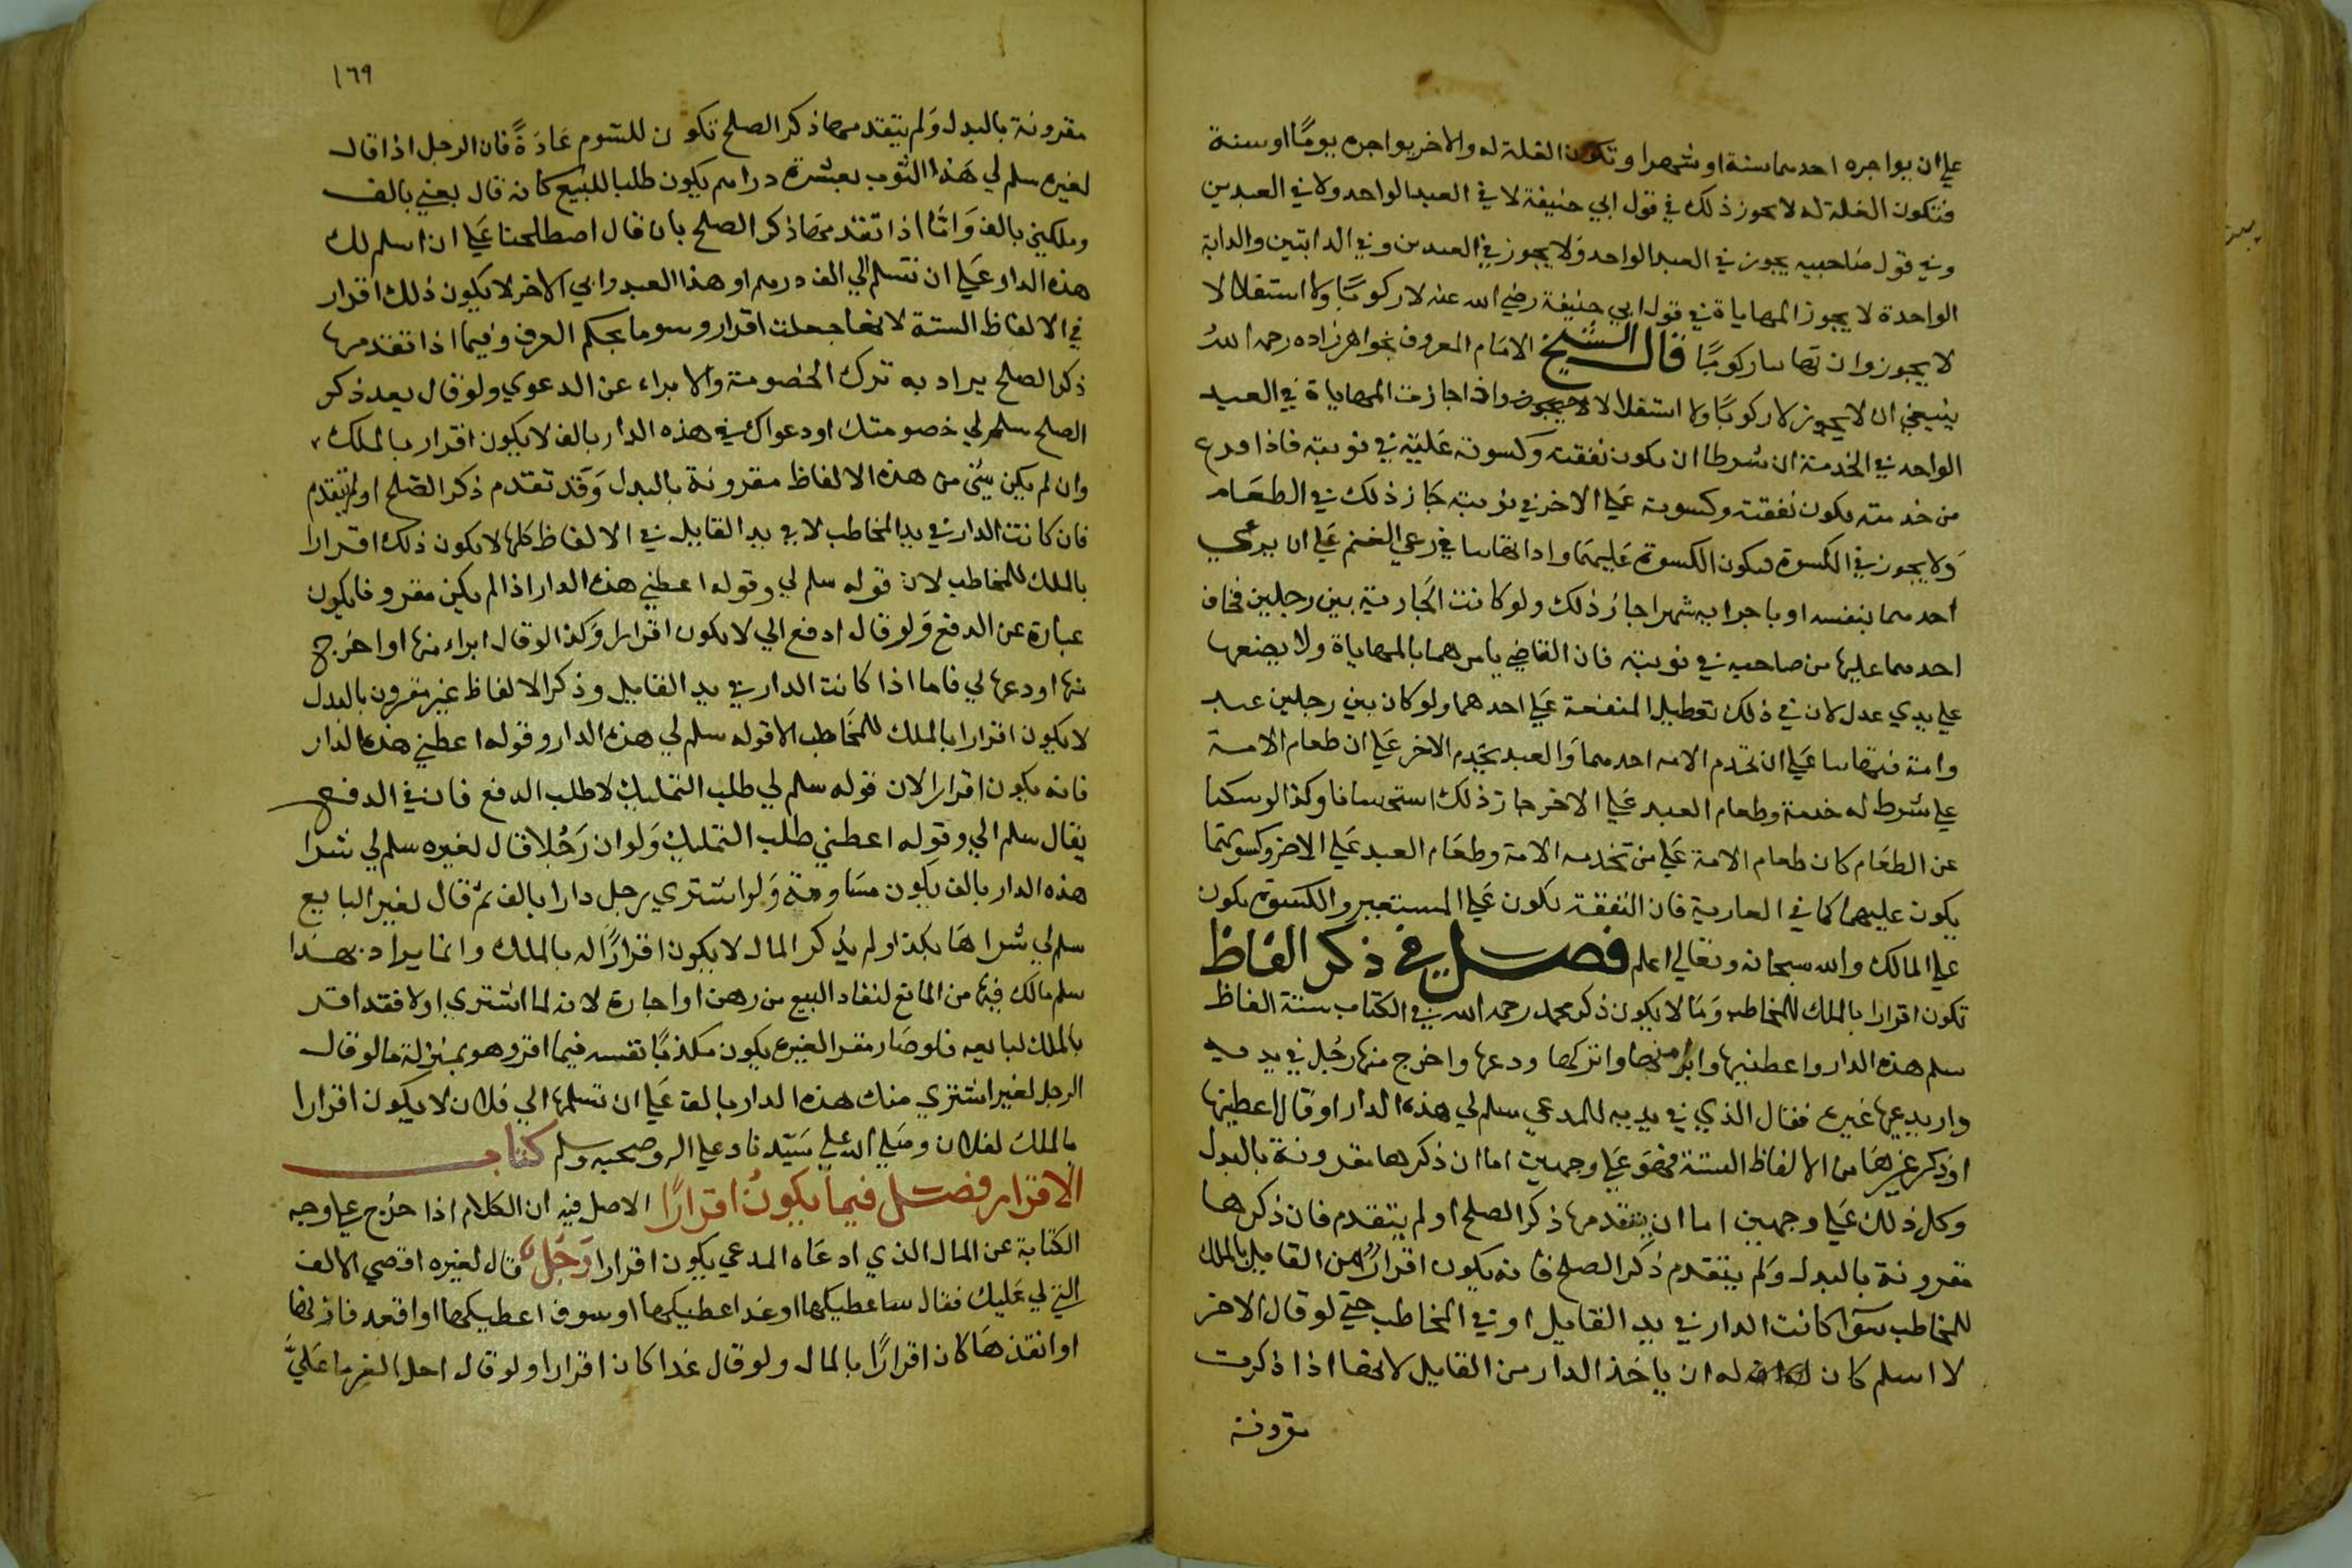 علي ان يواجره احدهما سنة او شهرا وتكون الغلة له والاخر يواجره يوما او سنة
فتكون الغلة له لا يجوز ذلك في قول ابي حنيفة لا في العبد الواحد ولا في العبدين
وفي قول صاحبيه يجوز في العبد الواحد ولا يجوز في العبدين وفي الدابتين والدابة
الواحدة لا يجوز المهاياة في قول ابي حنيفة رضي الله عنه لا ركوبًا ولا استغلالا
لا يجوز وان تهايا ركوبًا قال الشيخ الامام المعروف بخواهرزاده رحمه الله
ينبغي ان لا يجوز لا ركوبًا ولا استغلالا واذا جازت المهاياة في العبد
الواحد في الخدمة ان شرطا ان يكون نفقته وكسوته عليه في نوبته فاذا فرغ
من خدمته يكون نفقته وكسوته علي الاخر في نوبته جاز ذلك في الطعام
ولا يجوز في الكسوة فيكون الكسوة عليهما واذا تهايا في رعي الغنم علي ان يرعي
احدهما بنفسه او باجرائه شهرا جاز ذلك ولو كانت الجارية بين رجلين فخاف
احدهما عليها من صاحبه في نوبته فان القاضي يامرهما بالمهاياة ولا يضعها
علي يدي عدل لان في ذلك تعطيل المنفعة علي احدهما ولو كان بين رجلين عبد
وامة فتهايا علي ان تخدم الامه احدهما والعبد يخدم الاخر علي ان طعام الامة
علي شرط له خدمة وطعام العبد علي الاخر جاز ذلك استحسانا وكذا لو سكتا
عن الطعام كان طعام الامة علي من تخدمه الامة وطعام العبد علي الاخر وكسوتهما
يكون عليهما كما في العارية فان النفقة تكون علي المستعير والكسوة تكون
علي المالك والله سبحانه وتعالي اعلم فصل في ذكر الفاظ
تكون اقرارا بالملك للمخاطب وما لا يكون ذكر محمد رحمه الله في الكتاب ستة الفاظ
سلم هذه الدار واعطنيها وابرا منها واتركها ودعها واخرج منها رجل في يديه
دار يدعيها غيره فقال الذي في يديه للمدعي سلم لي هذه الدار او قال اعطنيها
او ذكر غيرها من الالفاظ الستة فهو علي وجهين اما ان ذكرها مقرونة بالبدل
وكل ذلك علي وجهين اما ان يتقدمها ذكر الصلح او لم يتقدم فان ذكرها
مقرونة بالبدل ولم يتقدم ذكر الصلح فانه يكون اقرارًا من القايل بالملك
للمخاطب سوآ كانت الدار في يد القايل او في المخاطب حتي لو قال الاخر
لا اسلم كان له ان ياخذ الدار من القايل لانها اذا ذكرت
مقرونة
١٦٩
مقرونة بالبدل ولم يتقدمها ذكر الصلح تكون للسوم عادةً فان الرجل اذا قال
لغيره سلم لي هذا الثوب بعشرة دراهم يكون طلبا للبيع كانه قال بعني بالف
وملكني بالف واما اذا تقدمها ذكر الصلح بان قال اصطلحنا علي ان اسلم لك
هذه الدار علي ان تسلم الي الف درهم او هذا العبد وابي الاخر لا يكون ذلك اقرار
في الالفاظ الستة لانها جعلت اقرار وسوما بحكم العرف وفيما اذا تقدمها
ذكر الصلح يراد به ترك الخصومة والابراء عن الدعوي ولو قال بعد ذكر
الصلح سلم لي خصومتك او دعواك في هذه الدار بالف لا يكون اقرار بالملك
وان لم يكن شئ من هذه الالفاظ مقرونة بالبدل وقد تقدم ذكر الصلح او لم يتقدم
فان كانت الدار في يد المخاطب لا في يد القايل في الالفاظ كلها لا يكون ذلك اقرارا
بالملك للمخاطب لان قوله سلم لي وقوله اعطني هذه الدار اذا لم يكن مقرونا يكون
عبارة عن الدفع ولو قال ادفع الي لا يكون اقرارا وكذا لو قال ابراء منها او اخرج
منها او دعها لي فاما اذا كانت الدار في يد القايل وذكر الالفاظ غير مقرون بالبدل
لا يكون اقرارا بالملك للمخاطب الا قوله سلم لي هذه الدار وقوله اعطني هذه الدار
فانه يكون اقرارا لان قوله سلم لي طلب التمليك لا طلب الدفع فان في الدفع
يقال سلم الي وقوله اعطني طلب التمليك ولو ان رجلا قال لغيره سلم لي شرا
هذه الدار بالف يكون مساومة ولو اشتري رجل دارا بالف ثم قال لغير البايع
سلم لي شراها بكذا ولم يذكر المال لا يكون اقرارًا له بالملك وانما يراد بهذا
سلم مالك فيها من المانع لنفاد البيع من رهن او اجارة لانه لما اشتري اولا فقد اقر
بالملك لبايعه فلو صار مقرا لغيره يكون مكذبًا نفسه فيما اقر وهو بمنزلة ما لو قال
الرجل لغير اشتري منك هذه الدار بالف علي ان تسلمها الي فلان لا يكون اقرارا
بالملك لفلان وصلي الله علي سيدنا وعلي اله وصحبه وسلم كتاب
الاقرار فصل فيما يكون اقرارًا الاصل فيه ان الكلام اذا خرج علي وجه
الكتابة عن المال الذي ادعاه المدعي يكون اقرارا رجل قال لغيره اقضي الالف
التي لي عليك فقال ساعطيكها او غدا اعطيكها او سوف اعطيكها او اقعد فاتزنها
او انقدها كان اقرارًا بالمال ولو قال غدا كان اقرارا ولو قال احل الغرما عليَّ